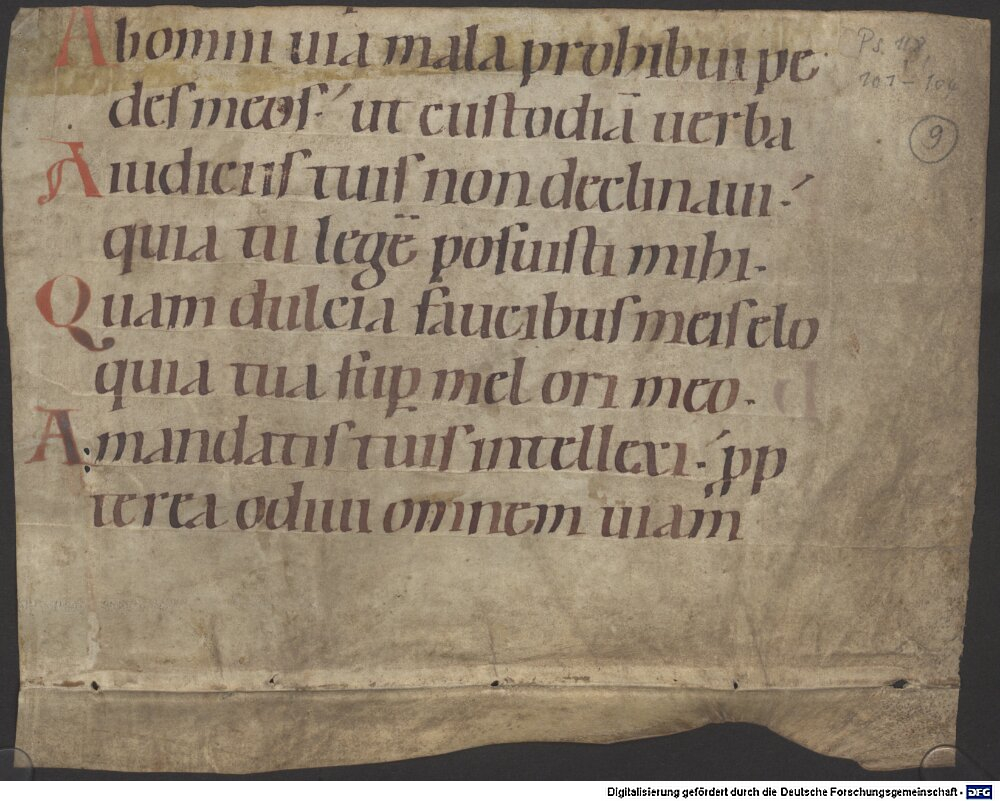 Ab omni uia mala prohibui pe
Ps. 118,
101-104
des meos·́ ut custodiā uerba
9
A iudiciis tuis non declinaui·́
quia tu legē posuisti mihi·
Quam dulcia faucibus meis elo
quia tua sup mel ori meo·
A mandatis tuis intellexi·́ pp
terea odiui omnem uiam
Digitalisierung gefördert durch die Deutsche Forschungsgemeinschaft - DFG